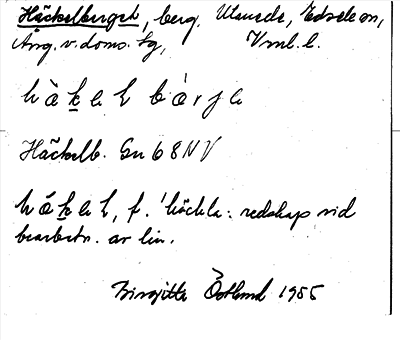 Häckelberget, berg. Utanede, Edsele sn,
Ång. v. doms. sg, Vml. l.
hàkeł bàrje
Häckelb. Gn 68 NV
hákeł, f. 'häckla: redskap vid
bearbetn. av lin.
Birgitta Östlund 1955